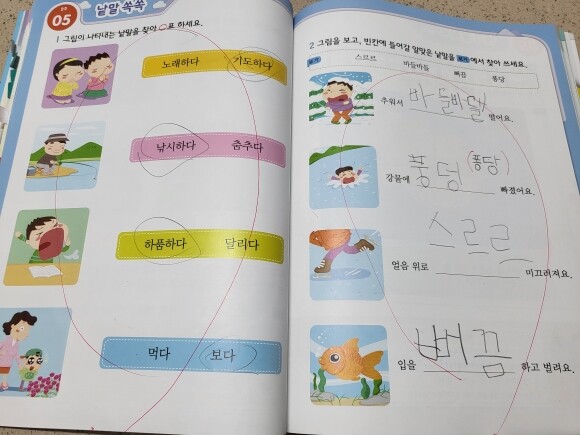 05
낱말 쏙쏙
1 그림이 나타내는 낱말을 찾아 ○표 하세요.
노래하다 기도하다
낚시하다 춤추다
하품하다 달리다
먹다 보다
2 그림을 보고, 빈칸에 들어갈 알맞은 낱말을 보기에서 찾아 쓰세요.
보기 스르르 바들바들 뻐끔 퐁당
추워서 바들바들 떨어요.
강물에 풍덩 (퐁당) 빠졌어요.
스르르
얼음 위로 미끄러져요.
입을 뻐끔 하고 벌려요.